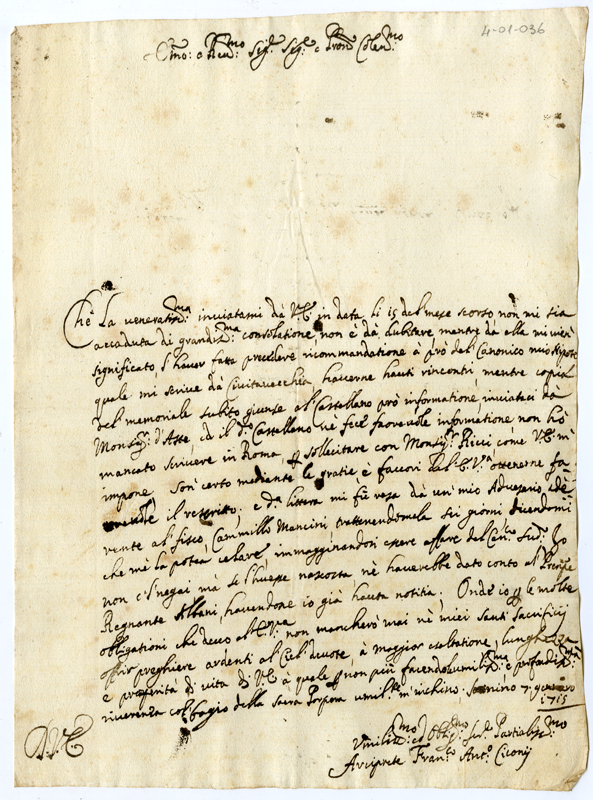 4-01-036
Em̃o: e Rev.mo Sig.r Sig.r e Pron Colen.mo
Che La veneratiss.ma inviatami dà V.E. in data di 15 del mese scorso non mi sia
accaduta di grandiss.ma consolatione, non è dà dubitare mentre dà ella mi vien
significato, l'haver fatta precedere ricommandatione à prò del Canonico mio Nipote
quale mi scrive dà Civitavecchia haverne hauti rincontri mentre copia
del memoriale subito giunse al Castellano prò informatione inviataci dà
Mons.r d'Aste, ed il d.o Castellano nè fece favorevole informatione non hò
mancato scrivere in Roma, sollecitare con Mons.r Ricci come V.E. m'
impone, son certo mediante le gratie e favori dell'E.V.a ottenerne fa-
vorevole il rescritto, e d.a littera mi fù resa dà un mio Adversario
vente al fisco, Cammillo Mancini trattenendomela sei giorni dicendomi
che me la potea celare immagginandosi essere affare del Can.co sud.o Io
non c'l negai mà se l'huesse nascosta nè haverebbe dato conto al
Regnante Albani, havendone io già hauta notitia. Onde io p le molte
obligationi che devo all'E.V.a non mancherò mai nè miei Santi Sacrificij
preghiere ardenti al Ciel devote, à maggior esaltatione, lunghezza
e prosperità di vita di V.E. à quale p non più facendo umiliss.ma e profondiss.ma
riverenza col bagio della Sacra Porpora umilm.te m'inchino. 7 gennaro
1715
D.V.E.
Umiliss.mo ed Obblig.mo Ser. Partialiss.mo
Arciprete Fran.co Ant.o Ciconij